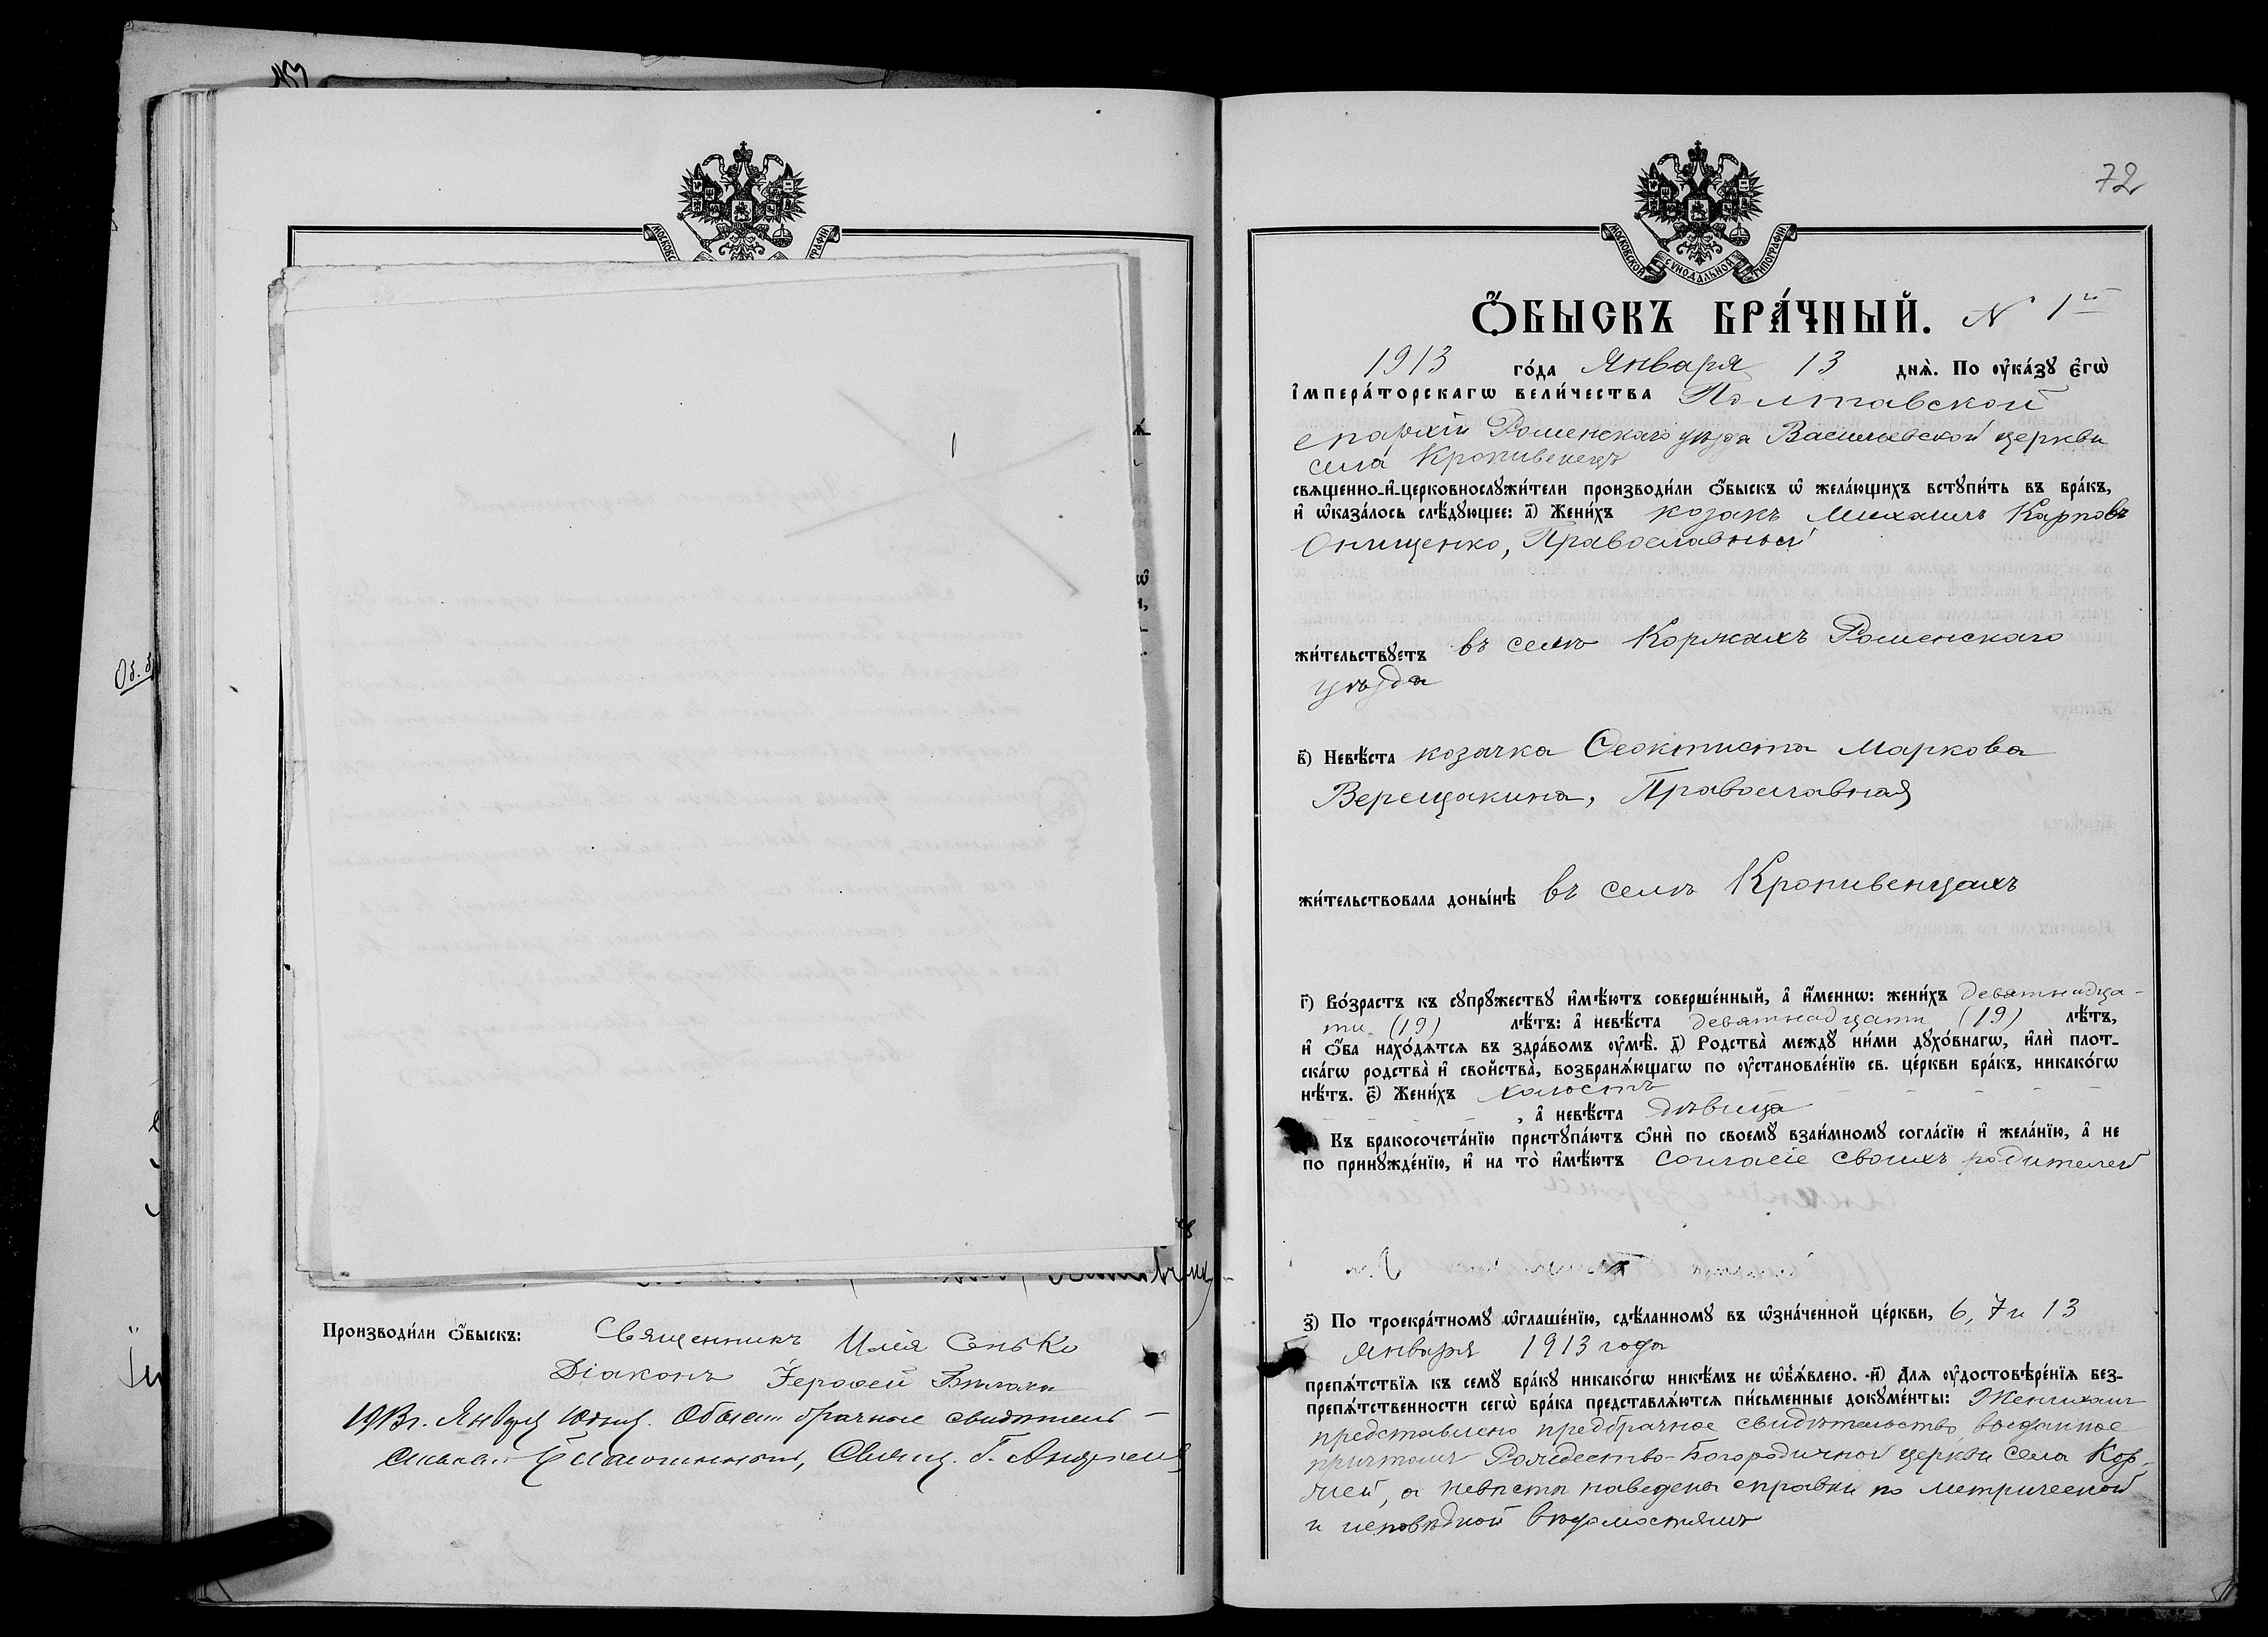 Производи́ли ѻ҆́быскъ: Священникъ Илія Сенько
Діаконъ Іерофей
1913 г. Января
Свящ. Г.
72
МОСКОВСКОЙ СѴНОДАЛЬНОЙ ТИПОГРАФІИ
Ѻ҆́БЫСКЪ БРА́ЧНЫЙ. N 1й
1913 го́да Января 13 днѧ̀. По ᲂу҆ка́зꙋ є҆гѡ̀
і҆мпера́торскагѡ вели́чества Полтавской
епархіи Роменскаго уѣзда Васильевской церкви
села Кропивенецъ
свѧщенно-и҆-церковнослꙋжи́тели производи́ли ѻ҆́быскъ ѡ҆ жела́ющихъ встꙋпи́ть въ бра́къ,
и҆ ѡ҆каза́лось слѣ́дꙋющее: а҃) Жени́хъ козакъ Михаилъ Карповъ
Онищенко, Православный
жи́тельствꙋетъ въ селѣ Коржахъ Роменскаго
уѣзда
в҃) Невѣ́ста козачка Ѳеоктиста Маркова
Верещакина, Православная
жи́тельствовала доны́нѣ въ селѣ Кропивенцахъ
г҃) Во́зрастъ къ сꙋпрꙋ́жествꙋ и҆мѣ́ютъ соверше́нный, а҆ и҆́менно: жени́хъ девятнадца-
ти (19) лѣ́тъ: а҆ невѣ́ста девятнадцати (19) лѣ́тъ,
и҆ ѻ҆́ба нахо́дѧтсѧ въ здра́вомъ ᲂу҆мѣ̀. д҃) Родства̀ междꙋ ни́ми дꙋхо́внагѡ, и҆лѝ плот-
ска́гѡ родства̀ и҆ сво́йства̀, возбранѧ́ющагѡ по ᲂу҆становле́нїю св. це́ркви бра́къ, никако́гѡ
нѣ́тъ. є҃) Жени́хъ холостъ
, а҆ невѣ́ста дѣвица
Къ бракосочета́нїю пристꙋпа́ютъ ѻ҆нѝ по своемꙋ̀ взаи́мномꙋ согла́сїю и҆ жела́нїю, а҆ не
по принꙋжде́нїю, и҆ на то̀ и҆мѣ́ютъ согласіе своихъ родителей
з҃) По троекра́тномꙋ ѡ҆глаше́нїю, сдѣ́ланномꙋ въ ѡ҆зна́ченной це́ркви, 6, 7 и 13
января 1913 года
препѧ́тствїѧ къ семꙋ̀ бра́кꙋ никако́гѡ никѣ́мъ не ѡ҆б̾ѧ́влено. и҃) Длѧ ᲂу҆достовѣре́нїѧ без-
препѧ́тственности сегѡ̀ бра́ка представлѧ́ютсѧ пи́сьменные докꙋме́нты: Женихомъ
представлено предбрачное свидѣтельство, выданное
причтомъ Рождество-Богородичной церкви села Кор-
жей, а невѣсты наведены справки по метрической
и исповѣдной вѣдомостямъ